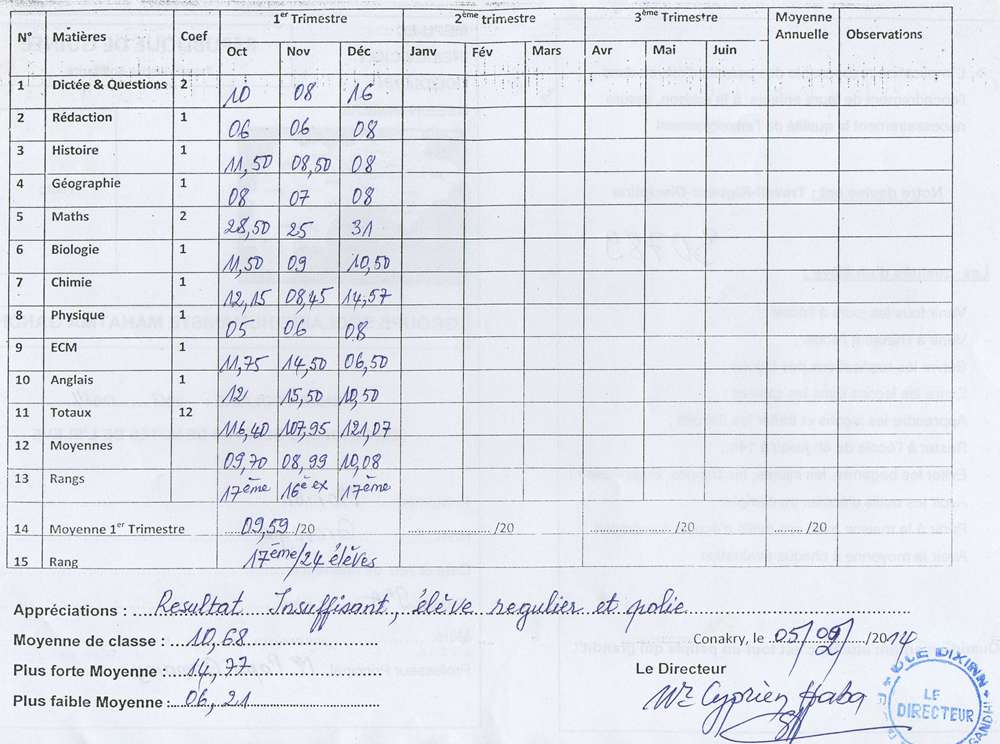 N° Matières Coef 1er Trimestre 2ème trimestre 3ème Trimestre Moyenne Annuelle Observations
Oct Nov Déc Janv Fév Mars Avr Mai Juin
1 Dictée & Questions 2 10 08 16
2 Rédaction 1 06 06 08
3 Histoire 1 11,50 08,50 08
4 Géographie 1 08 07 08
5 Maths 2 28,50 25 31
6 Biologie 1 11,50 09 10,50
7 Chimie 1 12,15 08,45 14,57
8 Physique 1 05 06 08
9 ECM 1 11,75 14,50 06,50
10 Anglais 1 12 15,50 10,50
11 Totaux 12 116,40 107,95 121,07
12 Moyennes 09,70 08,99 10,08
13 Rangs 17ème 16è ex 17ème
14 Moyenne 1er Trimestre 09,59 /20 /20 /20 /20
15 Rang 17ème/24 élèves
Appréciations : Resultat Insuffisant, élève regulier et polie
Moyenne de classe : 10,68
Plus forte Moyenne : 14,77
Plus faible Moyenne : 06,21
Conakry, le 05/02/2014
Le Directeur
Mr Cyprien Haba
DIXINN
LE
DIRECTEUR